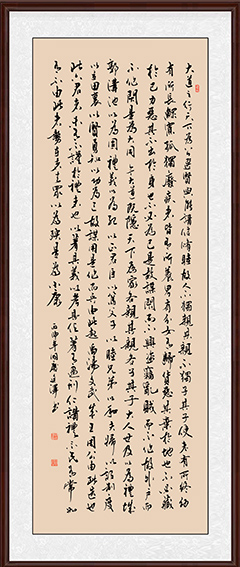 大道之行天下為公選賢與能講信修睦故人不獨親其親不獨子其子使老有所終幼
有所長鰥寡孤獨廢疾者皆有所養男有分女有歸貨惡其棄於地也不必藏
於己力惡其不出於身也不必為己是故謀閉而不興盜竊亂賊而不作故外戶而
不閉是為大同今大道既隱天下為家各親其親各子其子大人世及以為禮城
郭溝池以為固禮義以為紀以正君臣以篤父子以睦兄弟以和夫婦以設制度
以立田里以賢勇知以功為己故謀用是作而兵由此起禹湯文武成王周公由此其選也
此六君子者未有不謹於禮者也以著其義以考其信著有過刑仁講讓示民有常如
有不由此者在勢者去眾以為殃是為小康
丙申年